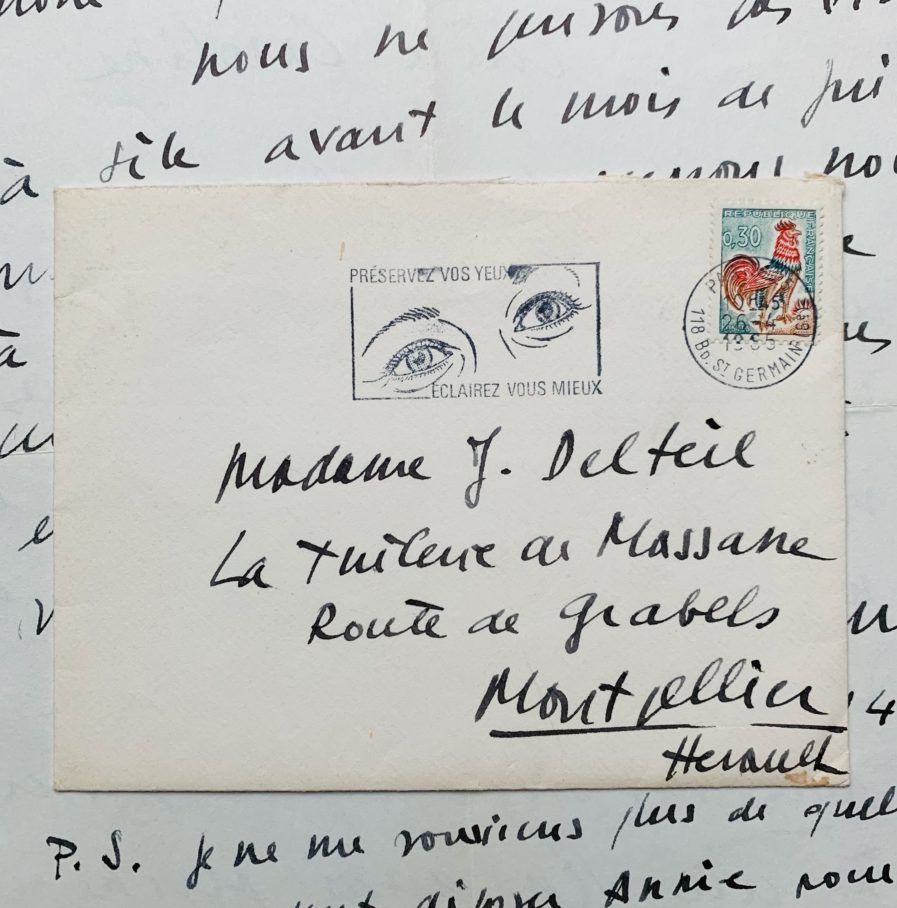 nous ne pensons pas
à Sète avant le mois de
nou
à
PRÉSERVEZ VOS YEUX
ÉCLAIREZ VOUS MIEUX
REPUBLIQUE FRANÇAISE
0,30
26-4
1965
118 BD. ST GERMAIN
Madame J. Delteil
La Tuilerie de Massane
Route de Grabels
Montpellier
Herault
4
P.S. je ne me souviens plus de quel
Annie pour